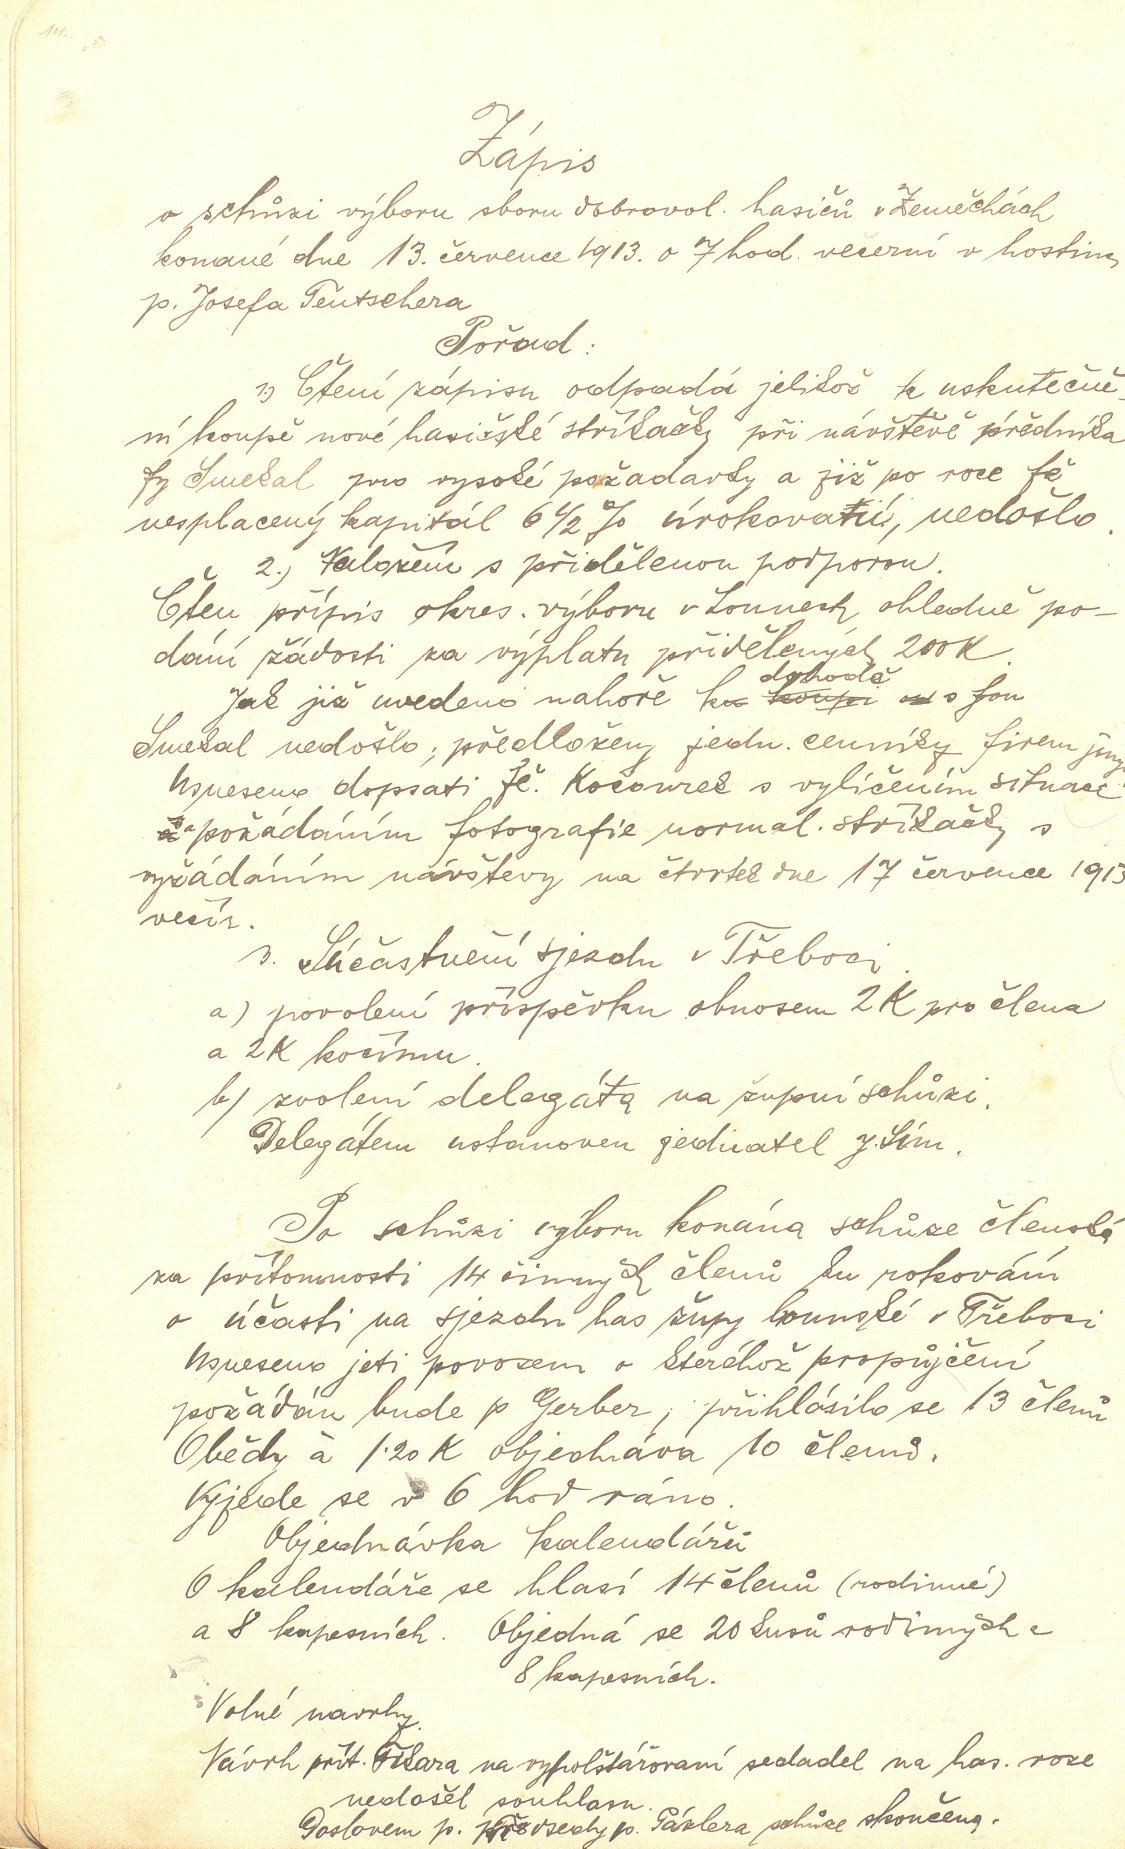 Zápis
o schůzi výboru sboru dobrovol. hasičů v Zeměchách
konané dne 13. července 1913. o 7 hod. večerní v hostinci
p. Josefa Teutschera
Pořad:
1.) Čtení zápisu odpadá jelikož k uskutečně-
ní koupě nové hasičské stříkačky při návštěvě předníka
fy Smekal pro vysoké požadavky a již po roce
nesplacený kapitál 6 1/2 % úrokovatií, nedošlo.
2.) Naložení s přidělenou podporou.
Čten přípis okres. výboru v Lounech ohledně po-
dání žádosti za výplatu přidělených 200 K.
Jak již uvedeno nahoře ku koupi dohodě s fou
Smekal nedošlo; předloženy jedn. cenníky firem jiných
Usneseno dopsati fě. Kocourek s vylíčením situace
a požádáním fotografie normal. stříkačky s
vyžádáním návštevy na čtvrtek dne 17 července 1913
večír.
3. Súčastnění sjezdu v Třeboci.
a) povolení příspěvku obnosem 2 K pro člena
a 2 K kočímu.
b) zvolení delegáta na župní schůzi.
Delegátem ustanoven jednatel J. Sím.
Po schůzi výboru konána schůze členská
za přítomnosti 14 činných členů ku rokování
o účasti na sjezdu has župy lounské v Třeboci
Usneseno jeti povozem o kteréhož propůjčení
požádán bude p Gerber; přihlásilo se 13 členů
Obědy à 1·20 K objednáva 10 členů.
Vyjede se v 6 hod ráno.
Objednávka kalendářů
O kalendáře se hlasí 14 členů (rodinné)
a 8 kapesních. Objedná se 20 kusů rodinných a
8 kapesních.
Volné navrhy.
Návrh přít. Fikara na vypolštářovaní sedadel na has. voze
nedošel souhlasu.
Doslovem p. předsedy p. Páclera schůze skončena.